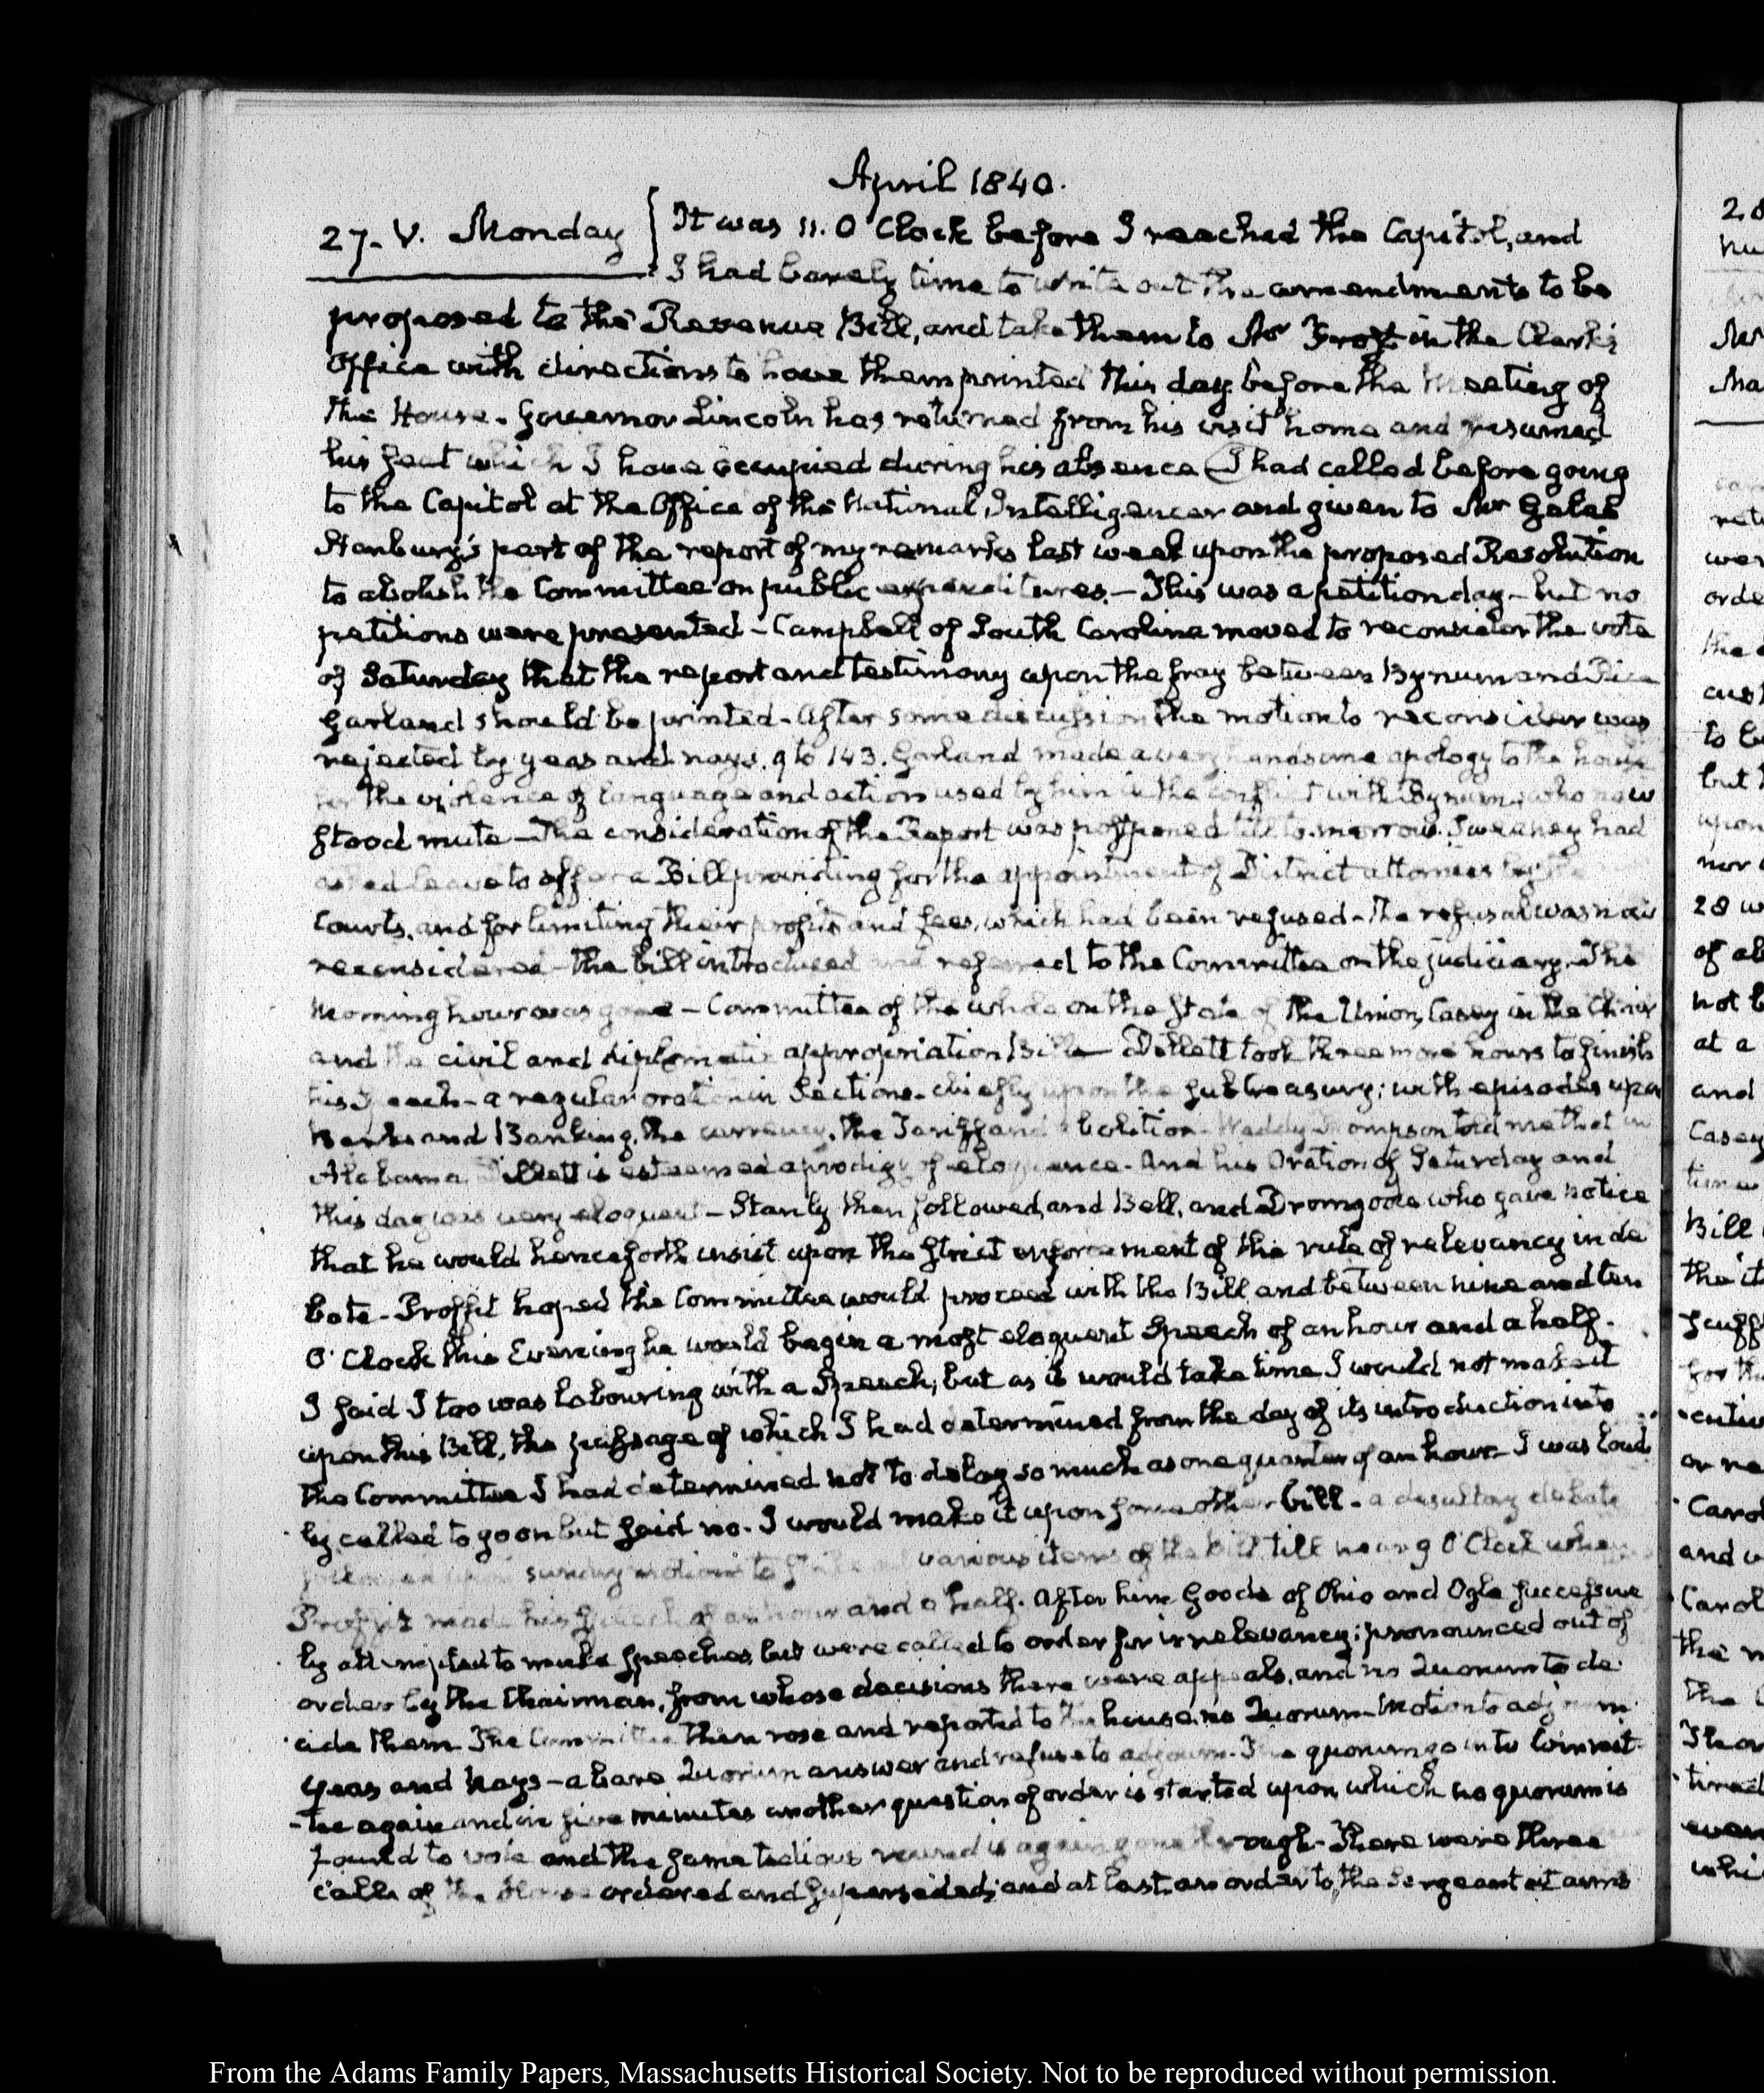 April 1840.
27. V. Monday
It was 11. O'Clock before I reached the Capitol, and
I had barely time to write out the amendments to be
proposed to the Revenue Bill, and take them to Mr Frost in the Clerk's
Office with directions to have them printed this day before the Meeting of
the House. Governor Lincoln has returned from his visit home and resumed
his seat which I have occupied during his absence I had called before going
to the Capitol at the Office of the National Intelligencer and given to Mr Gales
Stanbury's part of the report of my remarks last week upon the proposed Resolution
to abolish the Committee on public expenditures. - This was a petition day - but no
petitions were presented - Campbell of South Carolina moved to reconsider the vote
of Saturday that the report and testimony upon the fray between Bynum and Rice
Garland should be printed - After some discussion the motion to reconsider was
rejected by yeas and nays. 9 to 143. Garland made a very handsome apology to the house
for the violence of language and action used by him in the conflict with Bynum, who now
stood mute - The consideration of the Report was postponed till to-morrow. Sweeney had
asked leave to offer a Bill providing for the appointment of District attornies by the
Courts, and for limiting their profits and fees, which had been refused - The refusal was now
reconsidered - the bill introduced and referred to the Committee on the judiciary. The
morning hour was gone - Committee of the whole on the State of the Union, Casey in the Chair
and the civil and diplomatic appropriation Bill - Dellett took three more hours to finish
his speech - a regular oration in Sections - chiefly upon the subtreasury; with episodes upon
Banks and Banking, the currency, the Tariff and abolition - Waddy Thompson told me that in
Alabama Dellett is esteemed a prodigy of eloquence - And his Oration of Saturday and
this day was very eloquent - Stanly then followed, and Bell, and Dromgoole who gave notice
that he would henceforth insist upon the strict enforcement of the rule of relevancy in de
bate - Proffit hoped the Committee would proceed with the Bill and between nine and ten
O'Clock this Evening he would begin a most eloquent Speech of an hour and a half.
I said I too was labouring with a Speech; but as it would take time I would not make it
upon this Bill, the passage of which I had determined from the day of its introduction into
the Committee I had determined not to delay so much as one quarter of an hour - I was loud
ly called to go on but said no. I would make it upon some other bill - a desultory debate
followed upon sundry motions to strike out various items of the bill till near 9 O'Clock when
Proffit made his speech of an hour and a half. After him Goode of Ohio and Ogle successive
ly attempted to make speeches, but were called to order for irrelevancy; pronounced out of
order by the Chairman, from whose decisions there were appeals, and no Quorum to de
cide them - The Committee then rose and reported to the house no Quorum - Motion to adjourn
yeas and nays - a bare Quorum answer and refuse to adjourn. The quorum go into Commit
-tee again and in five minutes another question of order is started upon which no quorum is
found to vote and the same tedious round is again gone through - There were three
calls of the House ordered and superseded; and at last, an order to the Sergeant at arms
From the Adams Family Papers, Massachusetts Historical Society. Not to be reproduced without permission.